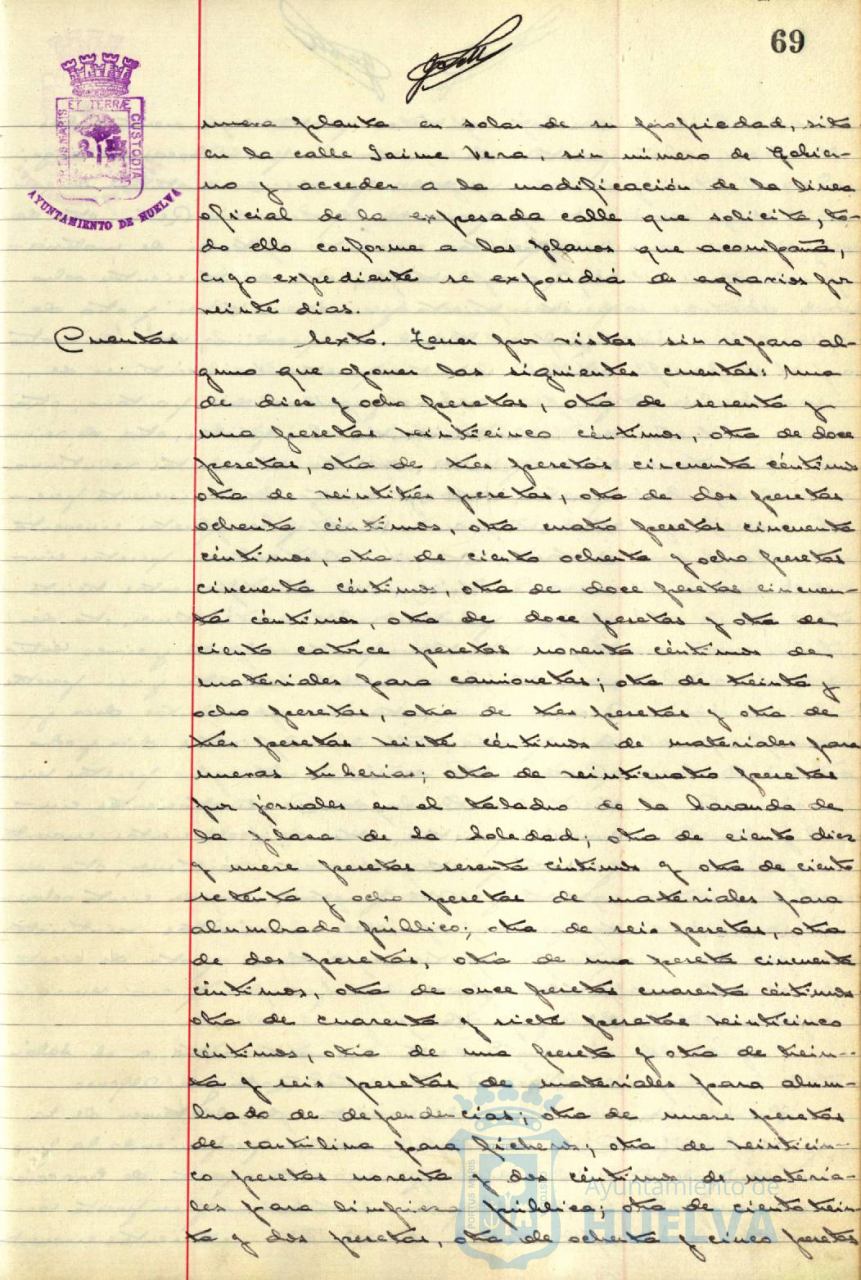 69
PORTUS MARIS
ET TERRÆ
CUSTODIA
AYUNTAMIENTO DE HUELVA
nueva planta en solar de su propiedad, sito
en la calle Jaime Vera, sin número de Gobier-
no y acceder a la modificación de la línea
oficial de la expesada calle que solicita, to-
do ello conforme a los planos que acompaña,
cuyo expediente se expondrá de agravios por
veinte dias.
Cuentas
Sexto. Tener por vistas sin reparo al-
guno que oponer las siguientes cuentas: una
de diez y ocho pesetas, otra de sesenta y
una pesetas veinticinco céntimos, otra de doce
pesetas, otra de tres pesetas cincuenta céntimos
otra de veintitrés pesetas, otra de dos pesetas
ochenta céntimos, otra cuatro pesetas cincuenta
céntimos, otra de ciento ochenta y ocho pesetas
cincuenta céntimos, otra de doce pesetas cincuen-
ta céntimos, otra de doce pesetas y otra de
ciento catorce pesetas noventa céntimos de
materiales para camionetas; otra de treinta y
ocho pesetas, otra de tres pesetas y otra de
tres pesetas veinte céntimos de materiales para
nuevas tuberias; otra de veinticuatro pesetas
por jornales en el taladro de la baranda de
la plaza de la Soledad; otra de ciento diez
y nueve pesetas sesenta céntimos y otra de ciento
setenta y ocho pesetas de materiales para
alumbrado público; otra de seis pesetas, otra
de dos pesetas, otra de una peseta cincuenta
céntimos, otra de once pesetas cuarenta céntimos
otra de cuarenta y siete pesetas veinticinco
céntimos, otra de una peseta y otra de trein-
ta y seis pesetas de materiales para alum-
brado de dependencias; otra de nueve pesetas
de cartulina para ficheros; otra de veinticin-
co pesetas noventa y dos céntimos de materia-
les para limpieza pública; otra de ciento trein-
ta y dos pesetas, otra de ochenta y cinco pesetas
Ayuntamiento de
HUELVA